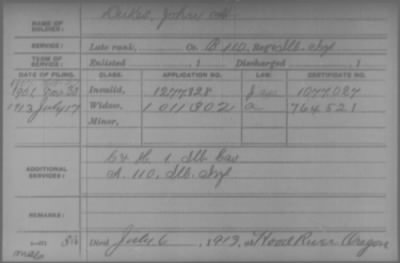 NAME OF SOLDIER: John
SERVICE: Late rank, Co. B 110, Reg't Ill. Inf
TERM OF SERVICE: Enlisted , 1 Discharged , 1
DATE OF FILING. CLASS. APPLICATION NO. LAW. CERTIFICATE NO.
1901 Invalid, 1277828 1077027
1913 July 17 Widow, 1011802 a 764521
Minor,
ADDITIONAL SERVICES: 1 Ill Cav
A. 110, Ill. Inf
REMARKS:
Died July 6, 1913, at Hood River Oregon